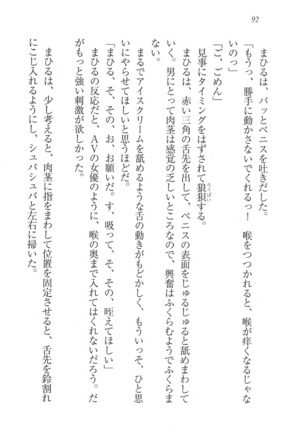 92
まひるは、パッとペニスを吐きだした。
「もうっ、勝手に動かさないでくれるっ！　喉をつつかれると、喉が痒くなるじゃな
いのっ」
「ご、ごめん」
見事にタイミングをはずされて狼狽する。
ろうばい
まひるは、赤い三角の舌先を出して、ペニスの表面をじゅるじゅると舐めまわして
いく。男にとって肉茎は感覚の乏しいところなので、興奮はふくらむようでふくらま
ない。
まるでアイスクリームを舐めるような舌の動きがもどかしく、もういっそ、ひと思
いにやらせてほしいと思うほどだ。
「まひる、そ、その、お、お願いだ。す、吸って、そ、その、咥えてほしい」
まひるの反応だと、ＡＶの女優のように、喉の奥まで入れてはくれないだろう。だ
がもっと強い刺激が欲しかった。
まひるは、少し考えると、肉茎に指をまわして位置を固定させると、舌先を鈴割れ
にこじ入れるようにし、シュパシュパと左右に掃いた。